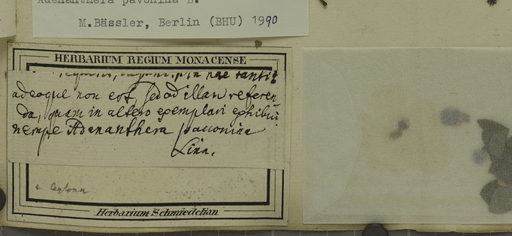 Adenanthera pavonina L.
M.Bässler, Berlin (BHU) 1990
HERBARIUM REGIUM MONACENSE
adeoque non est, sed ad illam referen
da, quam in altero exemplari exhibui
nempe Adenanthera pavonina
Linn.
Herbarium Schmiedelian